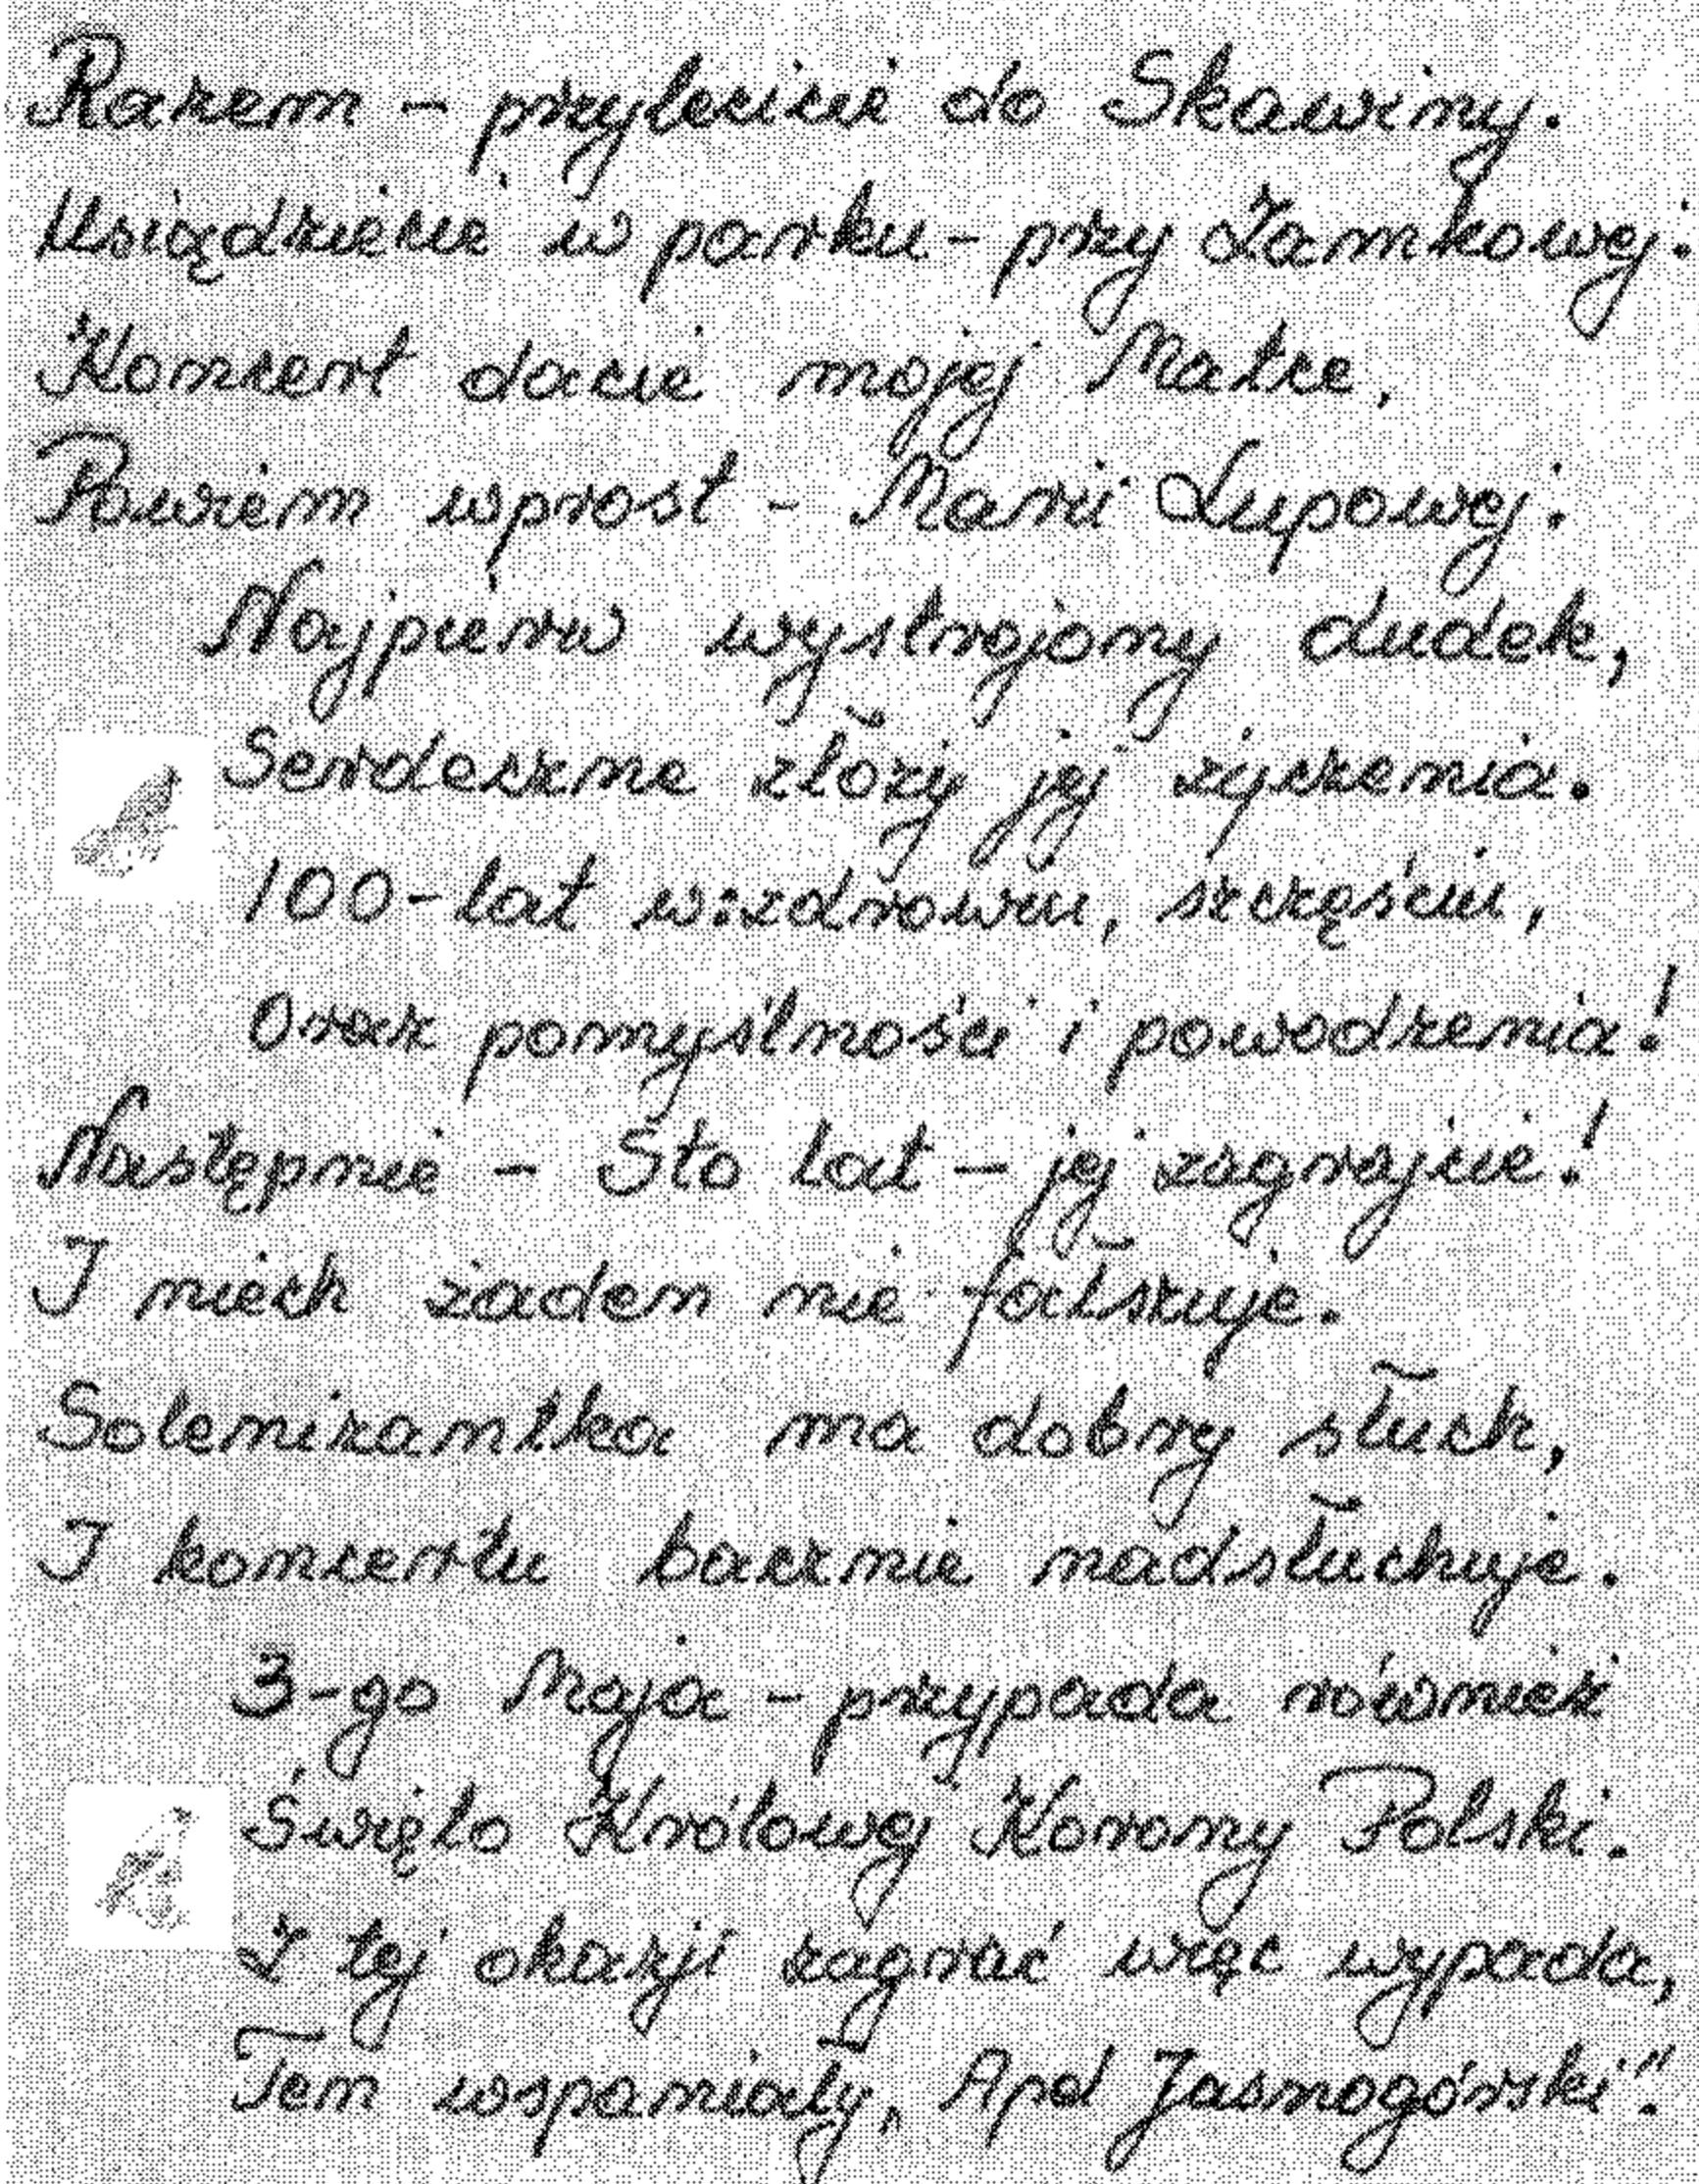 Razem - przylecicie do Skawiny.
Usiądziecie w parku - przy Zamkowej.
Koncert dacie mojej Matce,
Powiem wprost - Marii Lupowej.
Najpierw wystrojony dudek,
Serdeczne złoży jej życzenia.
100-lat w zdrowiu, szczęściu,
Oraz pomyślności i powodzenia!
Następnie - Sto lat - jej zagrajcie!
I niech żaden nie fałszuje.
Solenizantka ma dobry słuch,
I koncertu bacznie nadsłuchuje.
3-go Maja - przypada również
Święto Królowej Korony Polski.
Z tej okazji zagrać więc wypada,
Ten wspaniały „Apel Jasnogórski"!